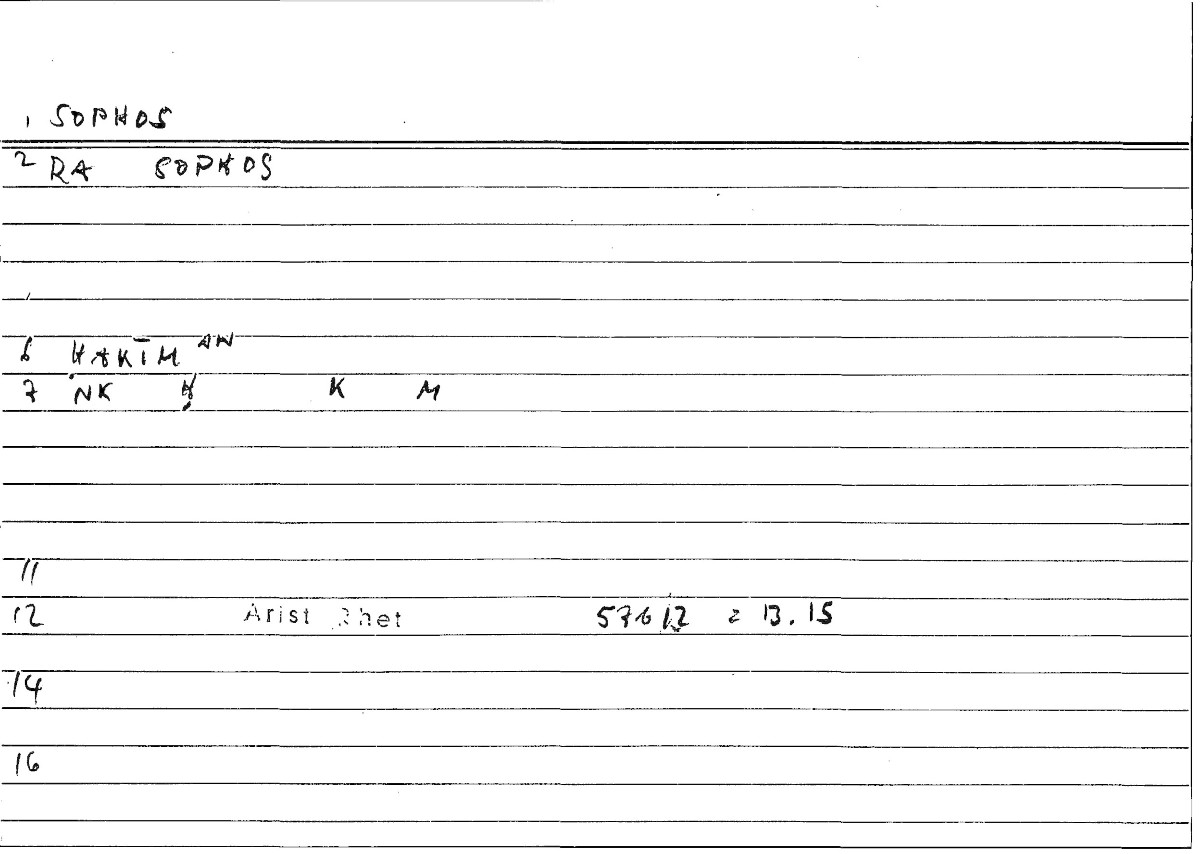 1 SOPHOS
2 RA SOPHOS
6 ḤAKĪM AN
7 NK Ḥ K M
11
12 Arist Rhet = 13.15
14
16